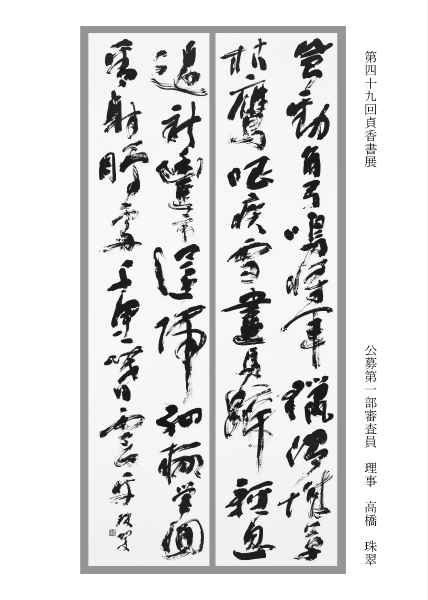 第四十九回貞香書展
公募第一部審査員　理事　高橋　珠翠
風勁角弓鳴將軍獵渭城草
枯鷹眼疾雪盡馬蹄輕忽
過新豐市還歸細柳營回
看射雕處千里暮雲平　珠翠